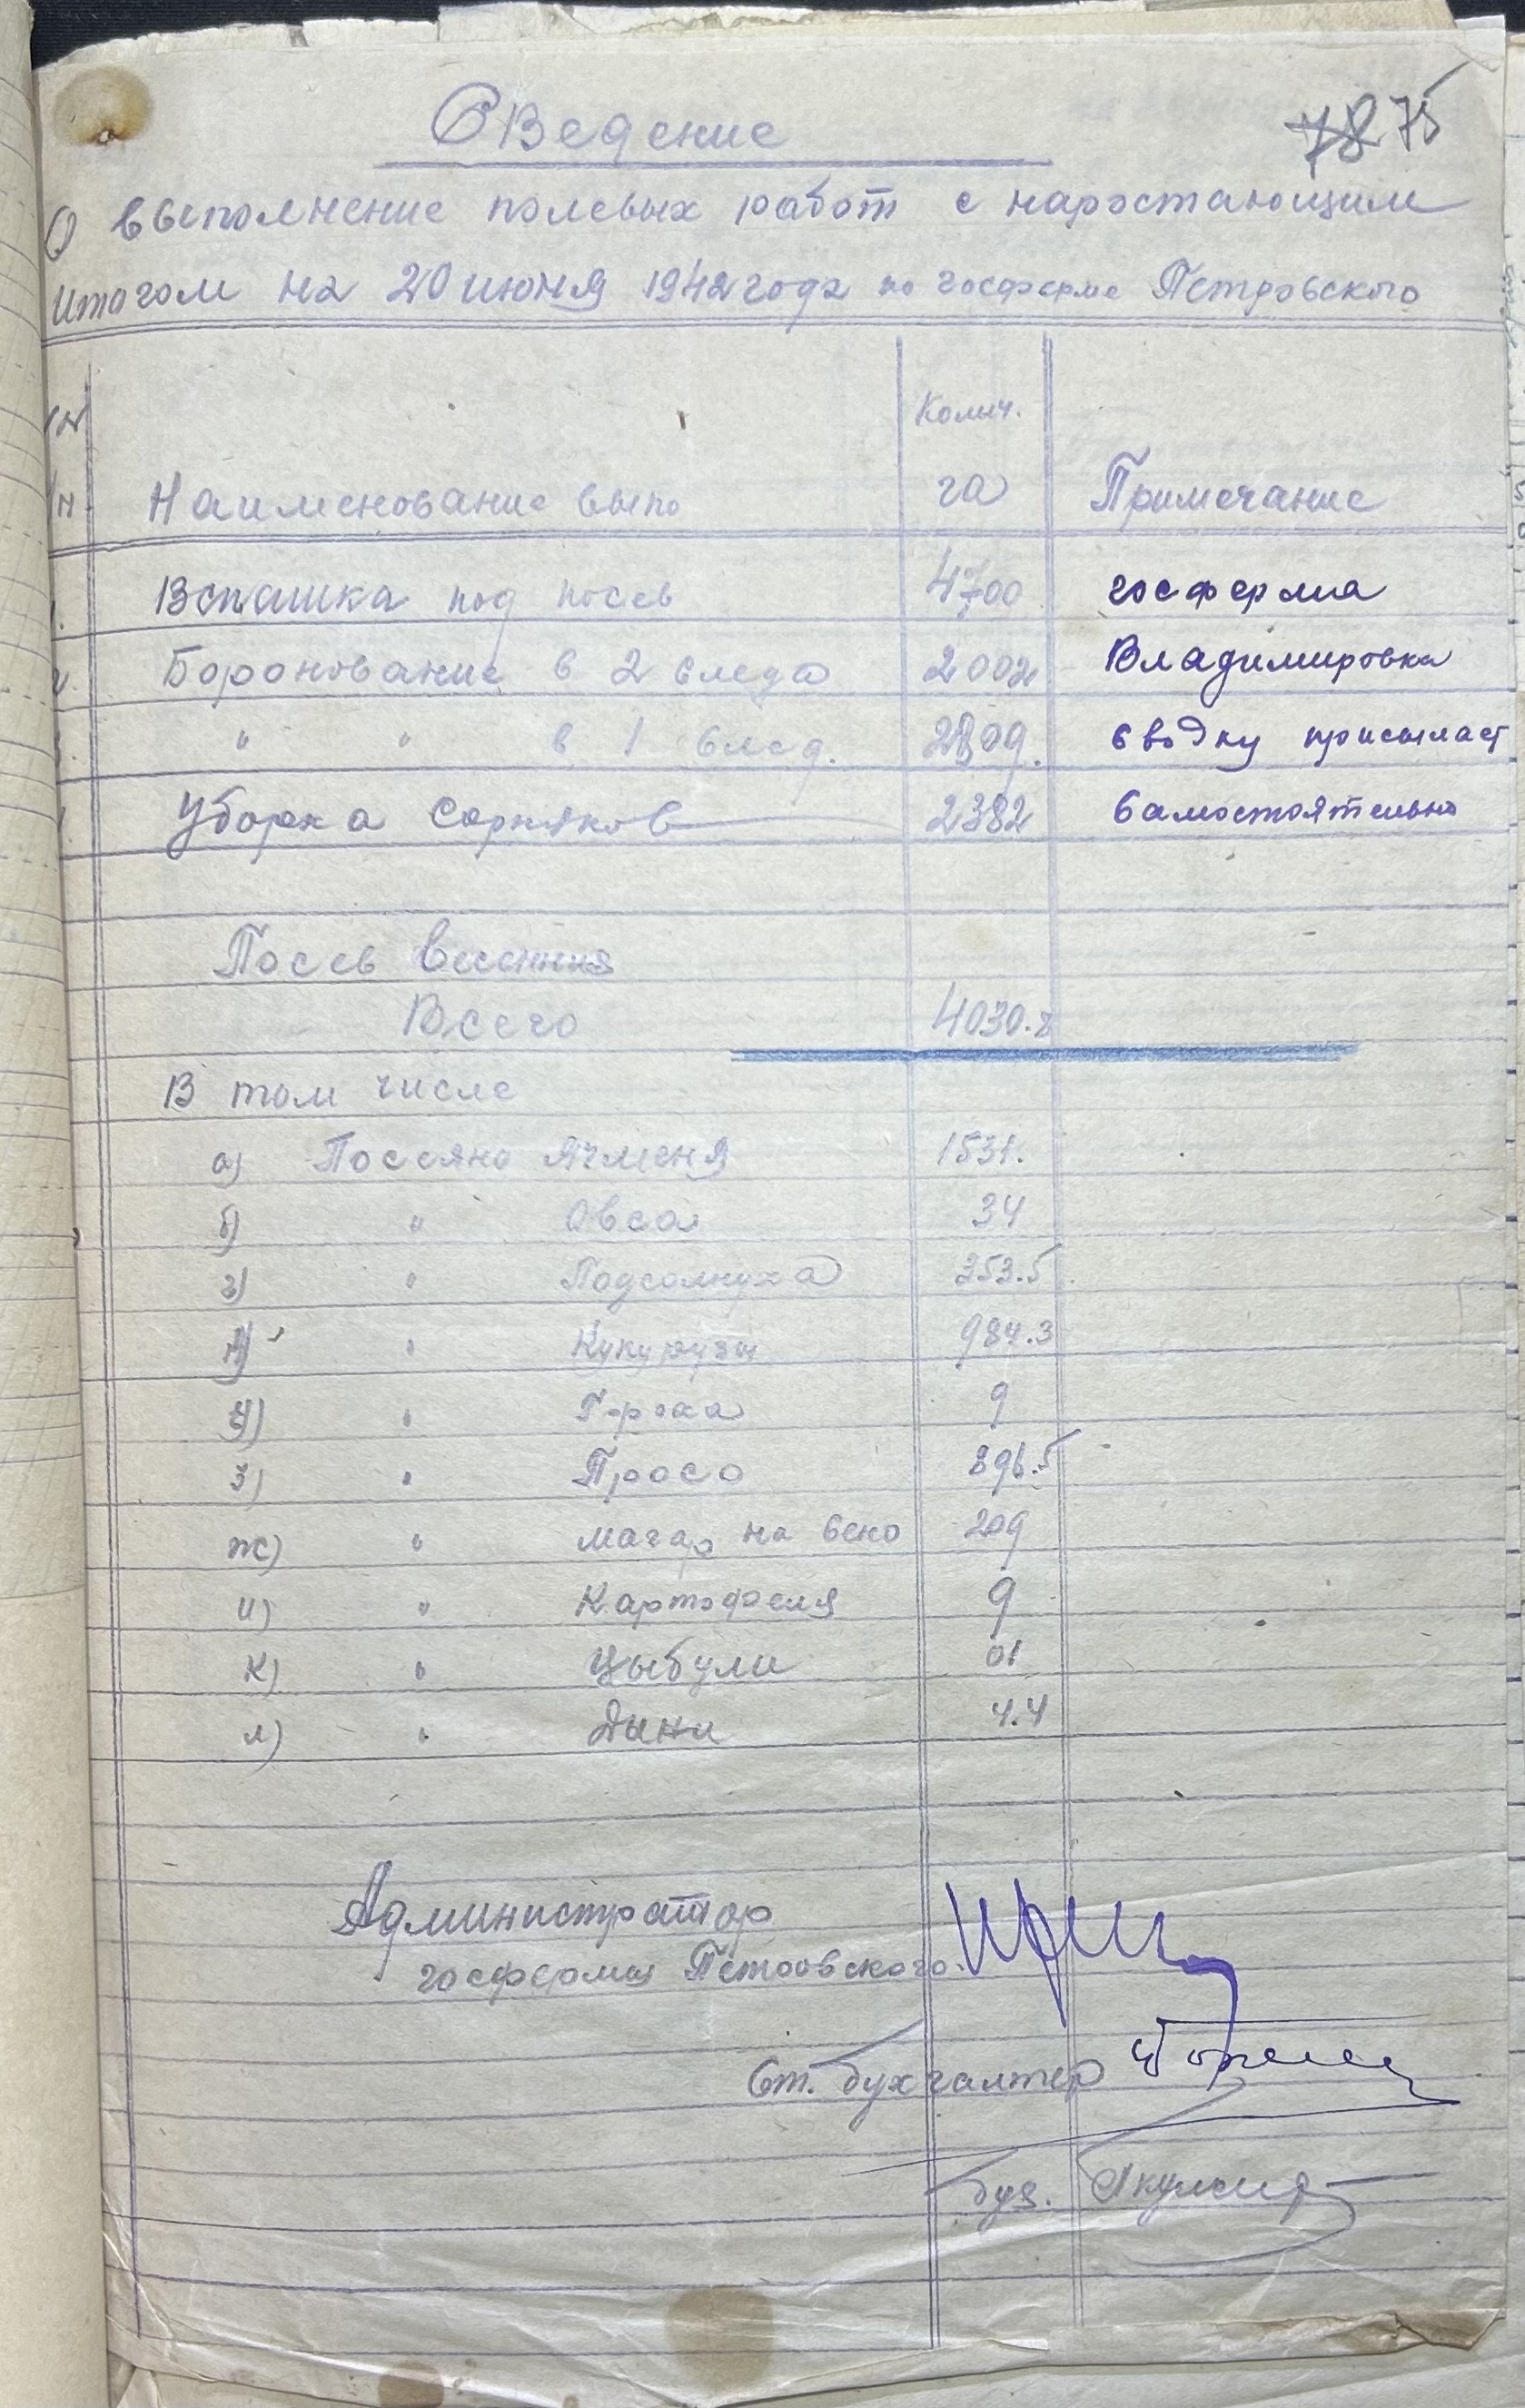 Сведение
78 75
О выполнение полевых работ с наростающим
итогом на 20 июня 1942 года по госферме Петровского
№ Колич.
п Наименование выпо га Примечание
Вспашка под посев 4700 госферма
2. Боронование в 2 следа 2002 Владимировка
" " в 1 след. 2809. сводку присылает
Уборка Сорняков 2382 самостоятельно
Посев весенния
Всего 4030.7
В том числе
а) Посеяно Ячменя 1531.
б) " Овса 34
г) " Подсолнуха 353.5
" Кукурузы 984.3
" Гороха 9
З) " Просо 896.5
ж) " Магар на сено 209
и) " Картофеля 9
к) " Цыбули 01
л) " Дыни 4.4
Администратор
госфермы Петровского.
Ст. бухгалтер
бух.